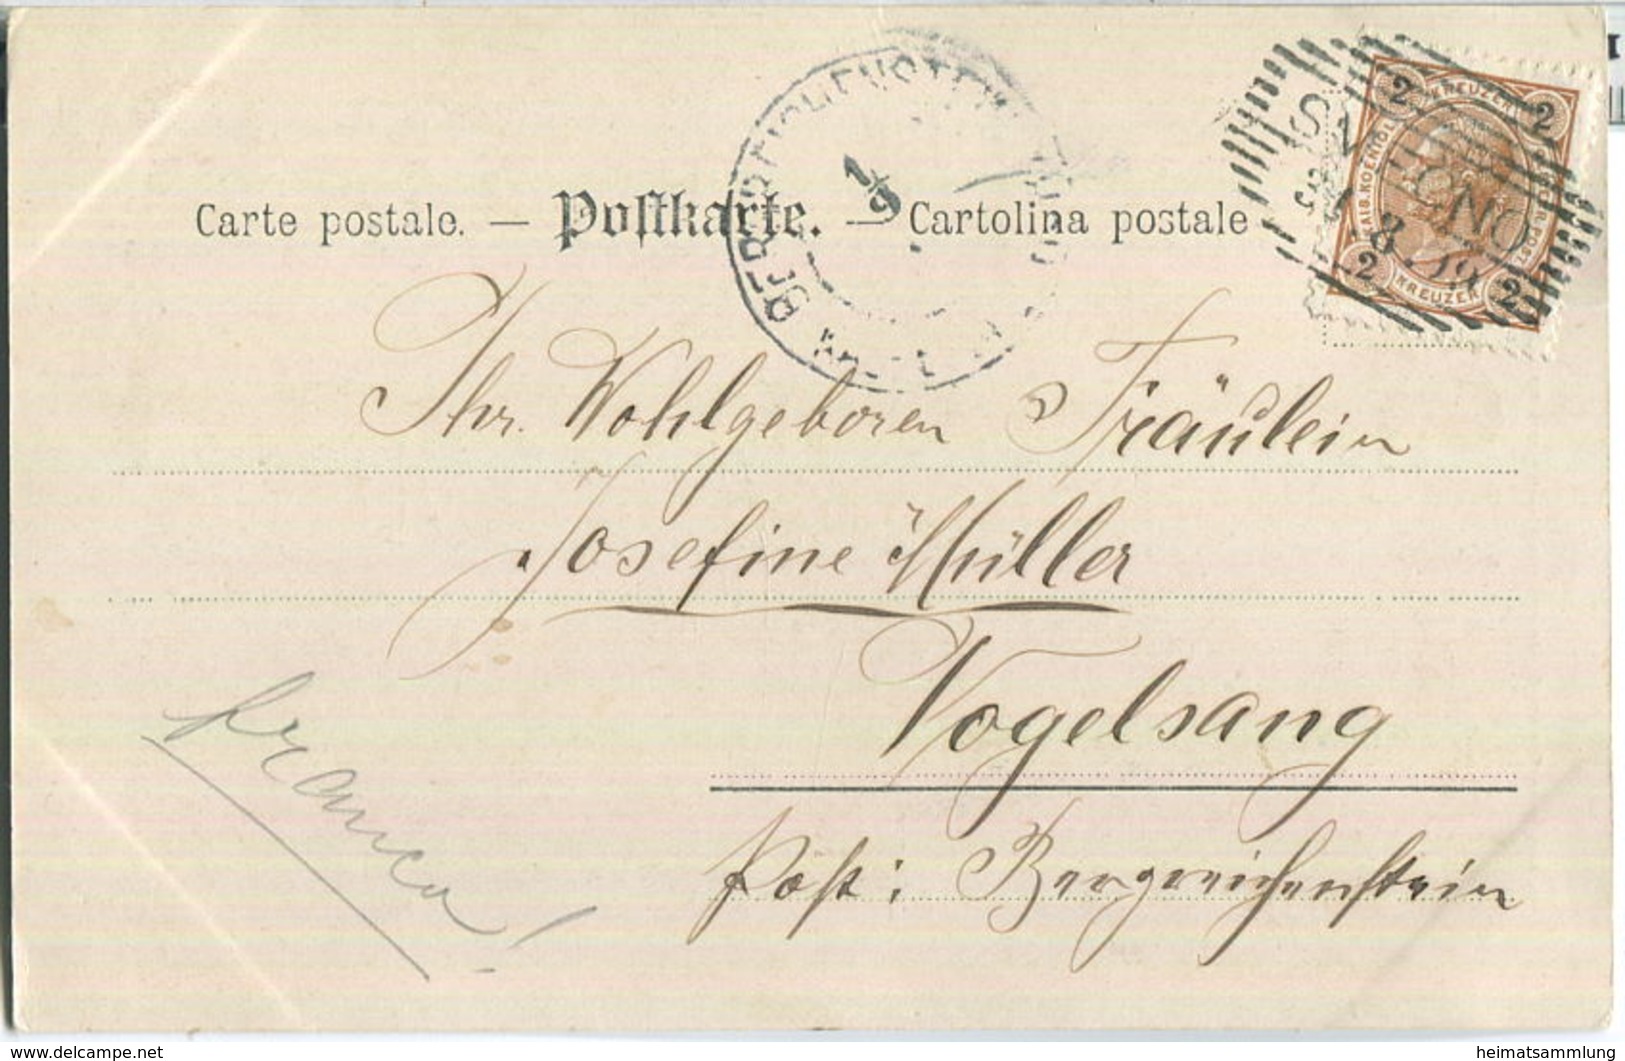 Carte postale. — Postkarte. — Cartolina postale
2 KREUZER 2
2 KREUZER 2
1/9
Ihr. Wohlgeboren Fräulein
Josefine Müller
Vogelsang
Post: Bergreichenstein
franco!
www.delcampe.net
heimatsammlung